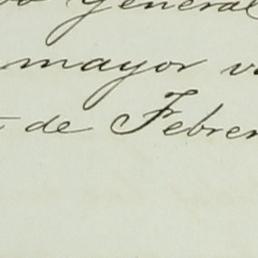 general
mayor v
de Febrer